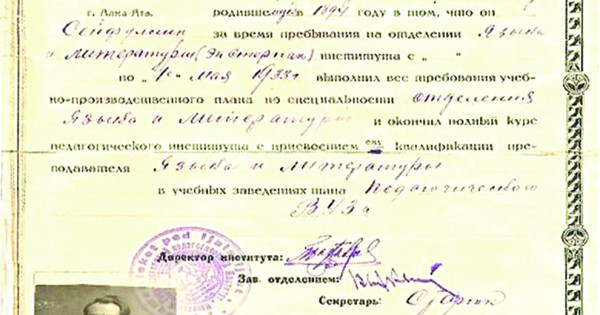 г. Алма-Ата. родившемуся в 1894 году в том, что он
Сейфуллин за время пребывания на отделении Языка
и литературы (Экстерном) института с „ “
по „1“ мая 1933 г. выполнил все требования учеб-
но-производственного плана по специальности отделения
Языка и литературы и окончил полный курс
педагогического института с присвоением ему квалификации пре-
подавателя Языка и литературы
в учебных заведениях типа Педагогического
ВУЗа
Директор института:
Зав. отделением:
Секретарь: